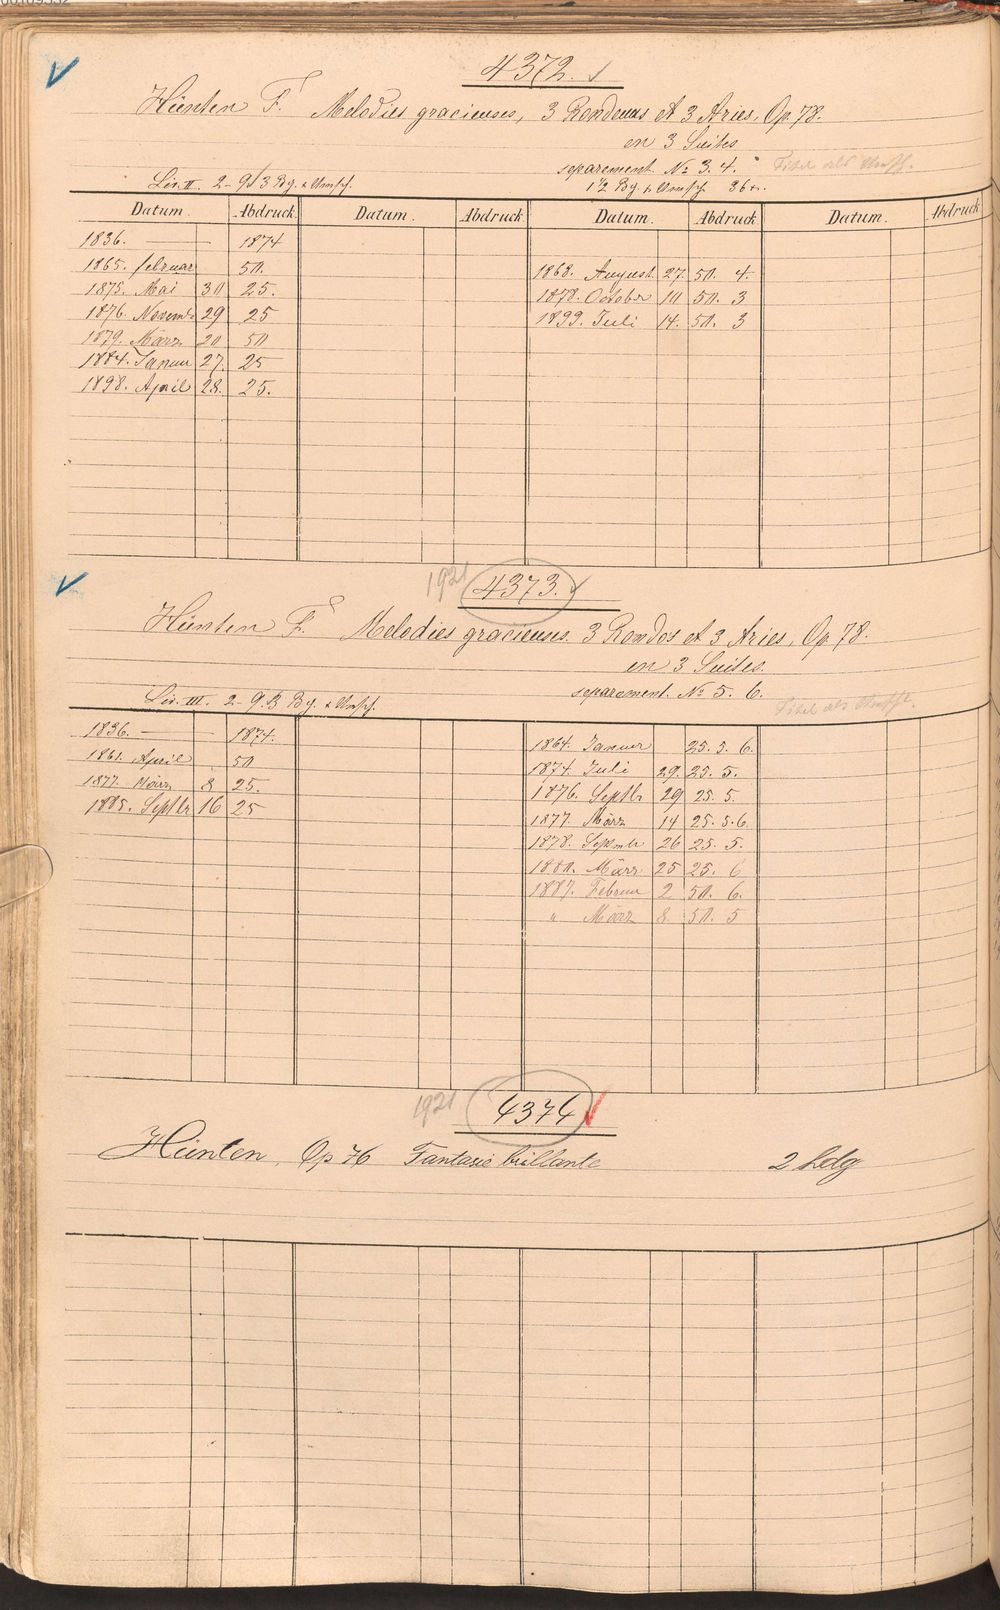 4372.
Hünten F. Melodies gracieuses, 3 Rondeaux et 3 Aries, Op. 78.
en 3 Suites
separement. No 3. 4. Titel als Umsch.
Liv. II 2-9/3 Bg. + Umsch. 1 1/2 Bg + Umsch 36 kr.
Datum. Abdruck. Datum. Abdruck. Datum. Abdruck. Datum. Abdruck.
1836. 1874
1865. februar 50. 1868. August 27. 50. 4.
1875. Mai 30 25. 1878. October 10 50. 3
1876. Novemb 29 25 1899. Juli 14. 50. 3
1879. März 20 50
1884. Januar 27. 25
1898. April 28. 25.
1921 4373.
Hünten F. Melodies gracieuses. 3 Rondos et 3 Aries, Op 78.
en 3 Suites.
separement. No 5. 6.
Liv. III. 2- 9.3 Bg + Umsch. Titel als Umsch.
1836. 1874. 1864. Januar 25. 5. 6.
1861. April 50 1874. Juli 29. 25. 5.
1877. März 8 25. 1876. Septbr 29 25 5.
1885. Septbr 16 25 1877. März 14 25. 5. 6.
1878. Septmbr 26 25. 5.
1880. März 25 25. 6
1887. Februar 2 50. 6.
" März 8. 50. 5
1921 4374
Hünten, Op 76 Fantasie brillante 2 hdg